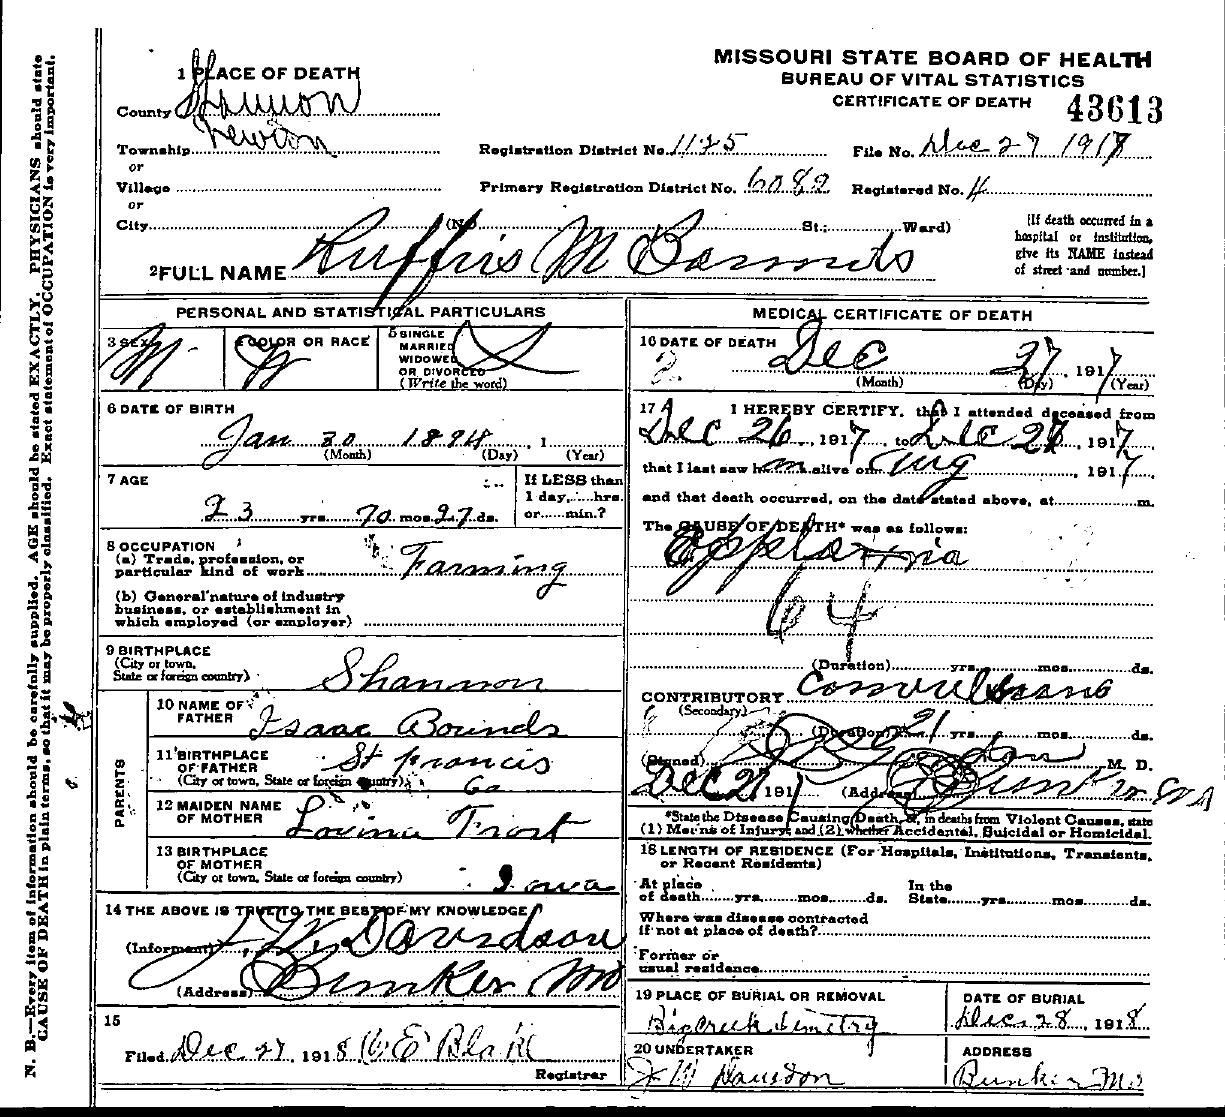 MISSOURI STATE BOARD OF HEALTH
BUREAU OF VITAL STATISTICS
CERTIFICATE OF DEATH 43613
1 PLACE OF DEATH
County Shannon
Township Newton
or
Village
or
City (No St.; Ward)
Registration District No. 1125 File No. Dec 27 1918
Primary Registration District No. 6082 Registered No. 4
[If death occurred in a
hospital or institution,
give its NAME instead
of street and number.]
2 FULL NAME Ruffus M
PERSONAL AND STATISTICAL PARTICULARS
3 SEX M
4 COLOR OR RACE W
5 SINGLE
MARRIED
WIDOWED
OR DIVORCED
(Write the word) S
6 DATE OF BIRTH
Jan 30 1894, 1
(Month) (Day) (Year)
7 AGE
23 yrs. 10 mos. 27 ds.
If LESS than
1 day,....hrs.
or....min.?
8 OCCUPATION
(a) Trade, profession, or
particular kind of work Farming
(b) General nature of industry
business, or establishment in
which employed (or employer)
9 BIRTHPLACE
(City or town,
State or foreign country) Shannon
PARENTS
10 NAME OF
FATHER Isaac Bounds
11 BIRTHPLACE
OF FATHER
(City or town, State or foreign country) St Francis
Co
12 MAIDEN NAME
OF MOTHER Lovina Frost
13 BIRTHPLACE
OF MOTHER
(City or town, State or foreign country) Iowa
14 THE ABOVE IS TRUE TO THE BEST OF MY KNOWLEDGE
(Informant) J. W. Davidson
(Address) Bunker Mo
15
Filed Dec 27, 1918 E Blake
Registrar
MEDICAL CERTIFICATE OF DEATH
16 DATE OF DEATH
Dec 27, 1917
(Month) (Day) (Year)
17 I HEREBY CERTIFY, that I attended deceased from
Dec 26, 1917, to Dec 27, 1917
that I last saw him alive on Aug, 1917
and that death occurred, on the date stated above, at m.
The CAUSE OF DEATH* was as follows:
64
(Duration) yrs. mos. ds.
CONTRIBUTORY
(Secondary)
(Duration) yrs. mos. ds.
(Signed) M. D.
Dec 27, 191 (Address) Bunker Mo
*State the Disease Causing Death, or, in deaths from Violent Causes, state
(1) Means of Injury; and (2) whether Accidental, Suicidal or Homicidal.
18 LENGTH OF RESIDENCE (For Hospitals, Institutions, Transients,
or Recent Residents)
At place
of death yrs. mos. ds. In the
State yrs. mos. ds.
Where was disease contracted
if not at place of death?
Former or
usual residence
19 PLACE OF BURIAL OR REMOVAL
Big Creek Cemetry
DATE OF BURIAL
Dec 28, 1918
20 UNDERTAKER
J W Davidson
ADDRESS
Bunker Mo
N. B.—Every item of information should be carefully supplied. AGE should be stated EXACTLY. PHYSICIANS should state
CAUSE OF DEATH in plain terms, so that it may be properly classified. Exact statement of OCCUPATION is very important.